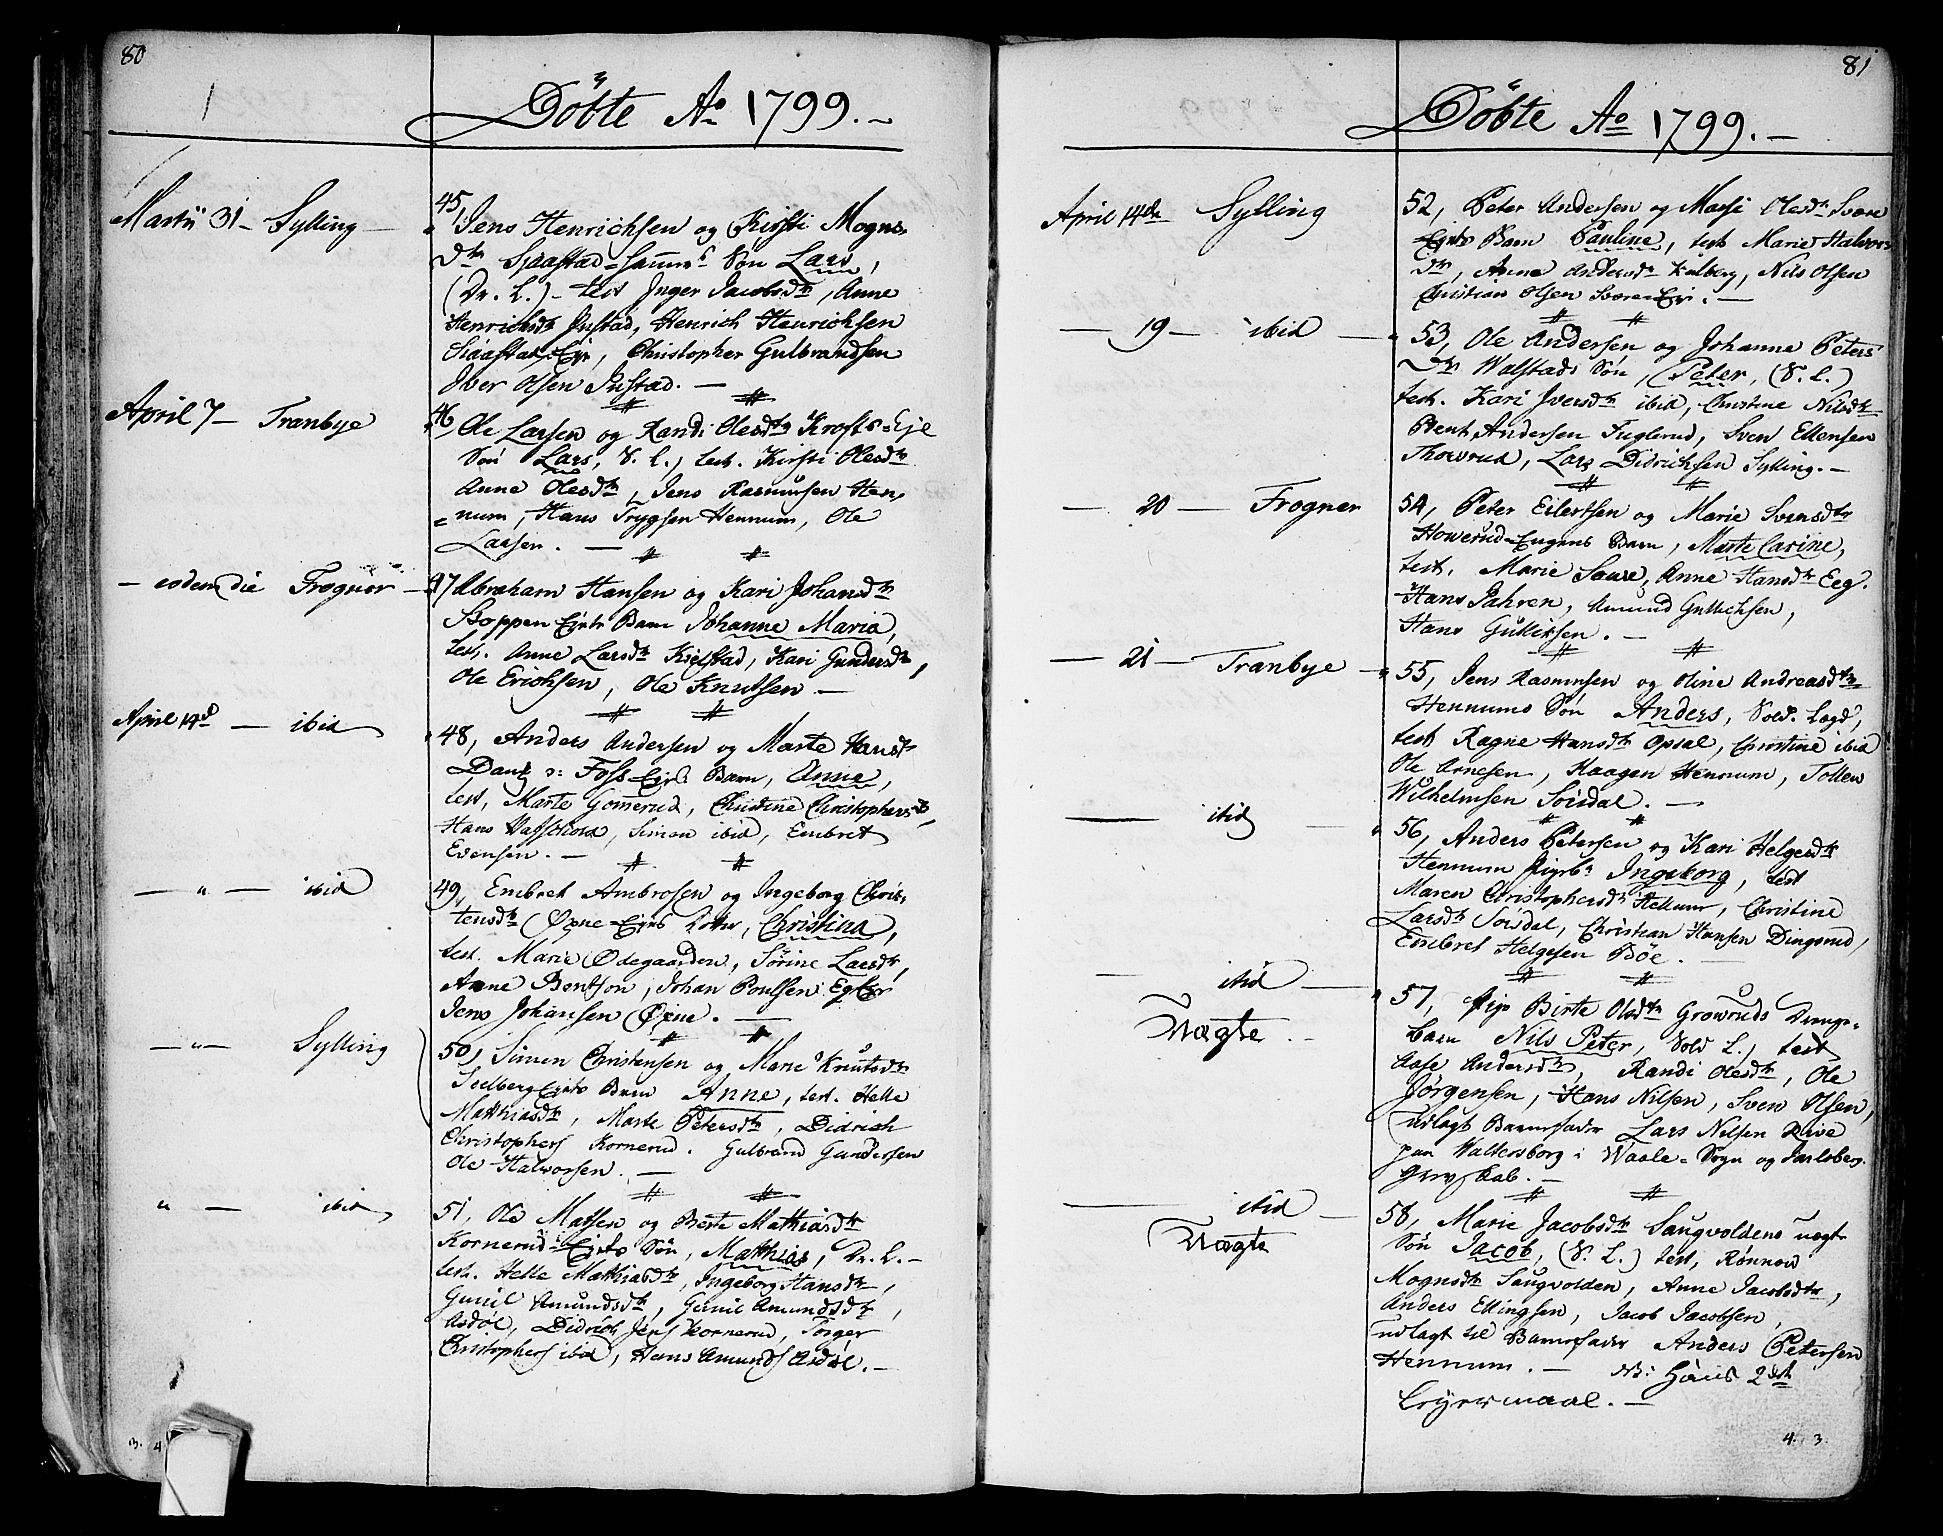 80
Döbte Ao 1799.
Martii 31 - Sylling -
45,
Jens Henrichsen og Kirsti Mogns-
dtr Sjaastad-Hanns Søn Lars,
(Dr. L.) - test Inger Jacobsdtr, Anne
Henrichsdtr Justad, Henrich Henrichsen
Siaastad Eje, Christopher Gulbrandsen
Iver Olsen Justad. -
April 7 - Tranbye
46, Ole Larsen og Randi Olesdtr Krofts-Eje
Søn Lars, S. L., test. Kirsti Olesdtr
Anne Olesdtr, Jens Rasmusen Hen-
num, Hans Trygsen Hennum, Ole
Larsen. -
- eodem die Frogner -
47 Abraham Hansen og Kari Johansdtr
Stoppen Ejets Barn Johanne Maria,
test. Anne Larsdtr Kielstad, Kari Gundersdtr,
Ole Erichsen, Ole Knutsen -
April 14de - ibid
48, Anders Andersen og Marte Hansdtr
Foss Barn, Anne,
test, Marte Gomerud, Christine Christophersdtr,
Hans, Simon ibid, Embret
Evensen. -
- " - ibid
49, Embret Ambrosen og Ingeborg Chris-
tensdtr Øxne-Ejets Dotter, Christina,
test. Marie Ødegaarden, Sørine Larsdtr,
Anne Bentson, Johan Poulsen Eg Ejer
Jens Johansen Øxne. -
- " - Sylling
50, Simen Christensen og Marie Knutsdtr
Solberg Ejets Barn Anne, test. Helle
Mathiasdtr, Marte Petersdtr, Didrich
Christophers Kornerud. Gulbrand Gundersen
Ole Halworsen. -
" - ibid
51, Ole Matsen og Berte Mathiasdtr
Kornerud-Ejets Søn, Mathias, Dr. L. -
test. Helle Mathiasdtr, Ingeborg Hansdtr,
Gunil Amundsdtr, Gunil Amundsdtr,
Asdøl, Didrich Jens Kornerud, Torger
Christophers ibid, Hans Amunds Asdøl. -
3. 4
81
Döbte Ao 1799. -
April 14de Sylling
52, Peter Andersen og Marie Olesdtr Svere
Ejets Barn Pauline, test Marie Halvors
dtr, Anne Andersdtr Kalberg, Nils Olsen
Christian Olsen Svere Eje. -
- 19 - ibid -
53, Ole Andersen og Johanne Peters
Dtr Walstads Søn, Peter, (S. L.)
test. Kari Iversdtr ibid, Christine Nilsdtr
Bent Andersen Fuglerud, Sven Ellensen
Thowrud, Lars Didrichsen Sylling. -
- 20 - Frogner
54, Peter Eilertsen og Marie Svensdtr
Howerud-Eugens Barn, Marte Carine,
test. Marie Saure, Anne Hansdtr Eeg.
Hans Jahren, Amund Gullichsen,
Hans Gulliksen. -
- 21 - Tranbye -
55, Jens Rasmusen og Oline Andreasdtr
Hennums Søn Anders, Sold. Lægd,
test Ragne Hansdtr Opsal, Christine ibid
Ole Arnesen, Haagen Hennum, Tollew
Wilhelmsen Soisdal. -
- ibid -
56, Anders Petersen og Kari Helgesdtr
Hennum Pigebn Ingeborg, test
Maren Christophersdtr Hellum, Christine
Larsdtr Soisdal, Christian Hansen Dingsrud,
Embret Helgesen Böe. -
- ibid -
Uægte.
57, Pige Birte Olsdtr Growruds Drenge-
barn Nils Peter, Sold L., test
Aase Andersdtr, Randi Olesdtr, Ole
Jørgensen, Hans Nilsen, Sven Olsen,
udlagt Barnefader Lars Nilsen Rive
paa Waltersborg i Waale-Sogn og Jarlsberg
Grevskab. -
- ibid -
Uægte
58, Marie Jacobsdtr Saugvoldens uægte
Søn Jacob, (S. L.) test, Rønnow
Mognsdtr Saugvolden, Anne Jacobsdtr,
Anders Ellingsen, Jacob Jacobsen,
udlagt til Barnefader Anders Petersen
Hennum. - NB: Hans 2det
Leyermaal. -
4. 3.